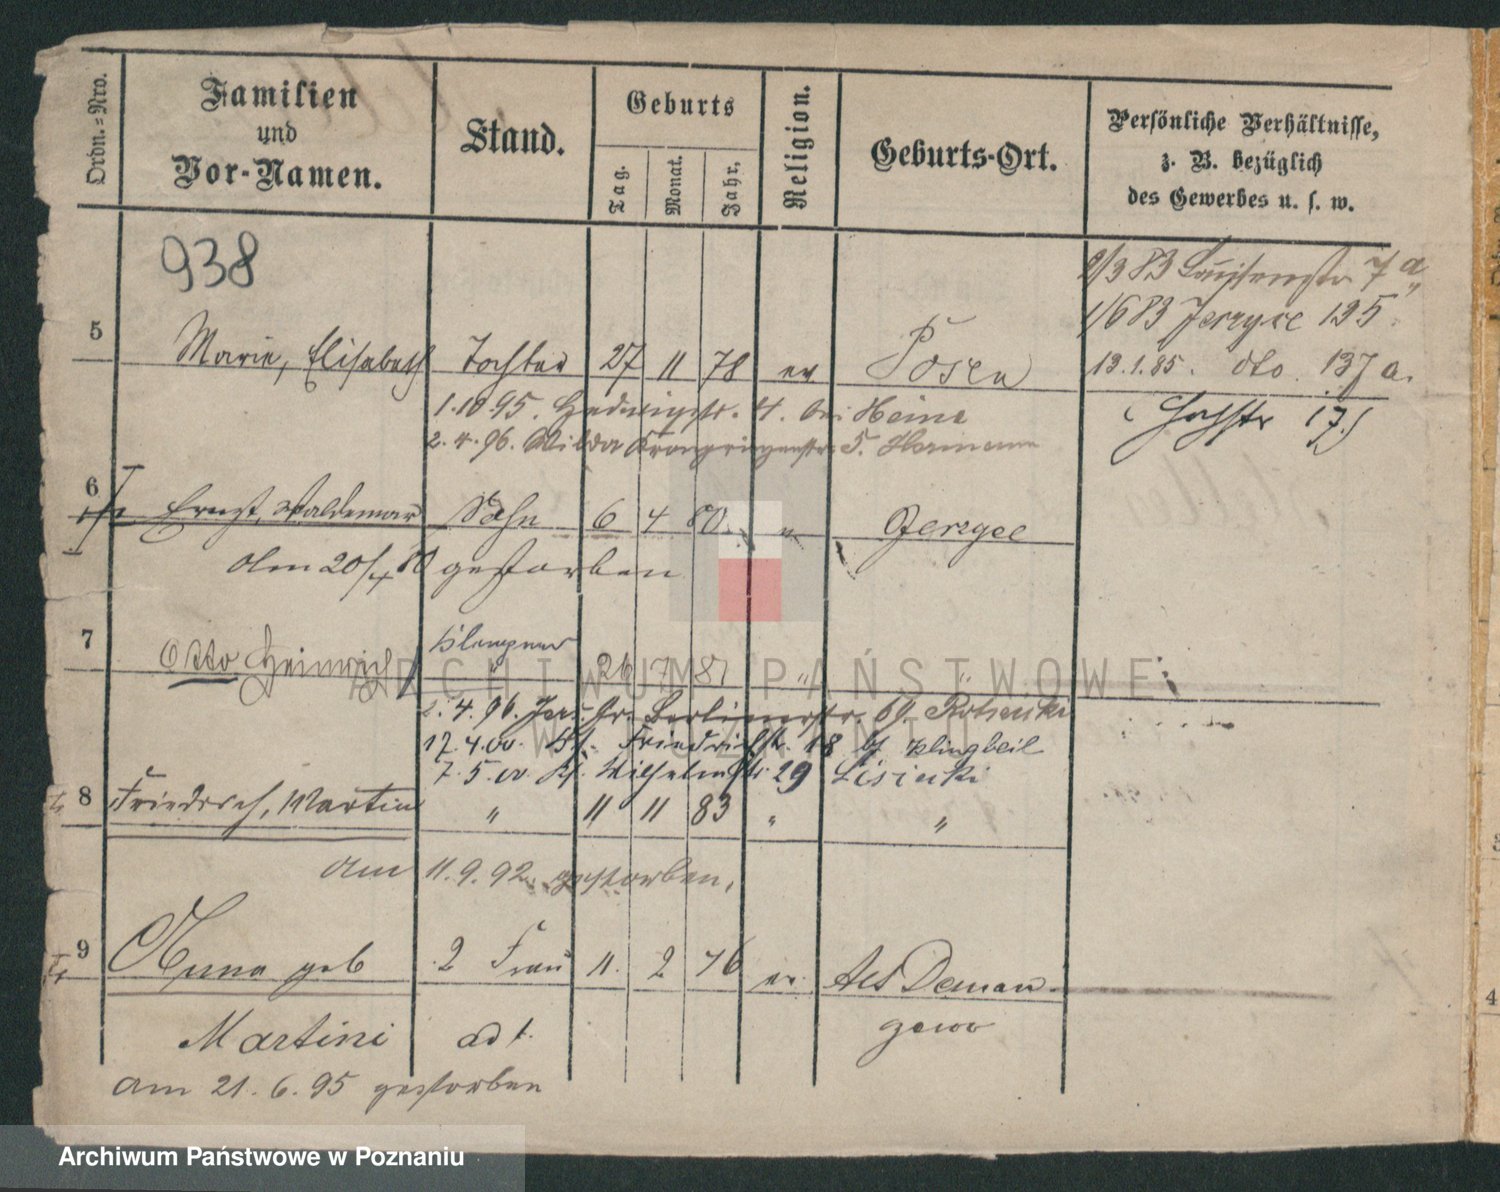 Ordn.-Nro.
Familien
und
Vor-Namen.
Stand.
Geburts
Tag.
Monat.
Jahr.
Religion.
Geburts-Ort.
Persönliche Verhältnisse,
z. B. bezüglich
des Gewerbes u. s. w.
938
2/3 83 7 a
1/6 83 Jerzyce 135
5 Marie, Elisabeth Tochter 27 11 78 ev Posen 13.1.85. dto 137 a.
1.10.95. Hedwigstr. 4. bei Heinz
2.4.96. Wilda Kronprinzenstr. 5. Hermann
17.
6 Ernst, Waldemar Sohn 6 4 80 " Jerzyce
Am 20/4 80 gestorben
7 Otto Heinrich Klempner 26 7 81 " "
2.4.96. Jer. Gr. Berlinerstr. 69.
17.4.00. Friedrichstr. 18 b/ Klingbeil
7.5.00 Wilhelmstr. 29 Lisiecki
8 Friedrich, Martin " 11 11 83 " "
am 11.9.92. gestorben.
9 Anna geb 2 Frau 11. 2 76 ev. Alt Deman-
Martini ad 1. zewo
am 21.6.95 gestorben
ARCHIWUM PAŃSTWOWE
W POZNANIU
Archiwum Państwowe w Poznaniu